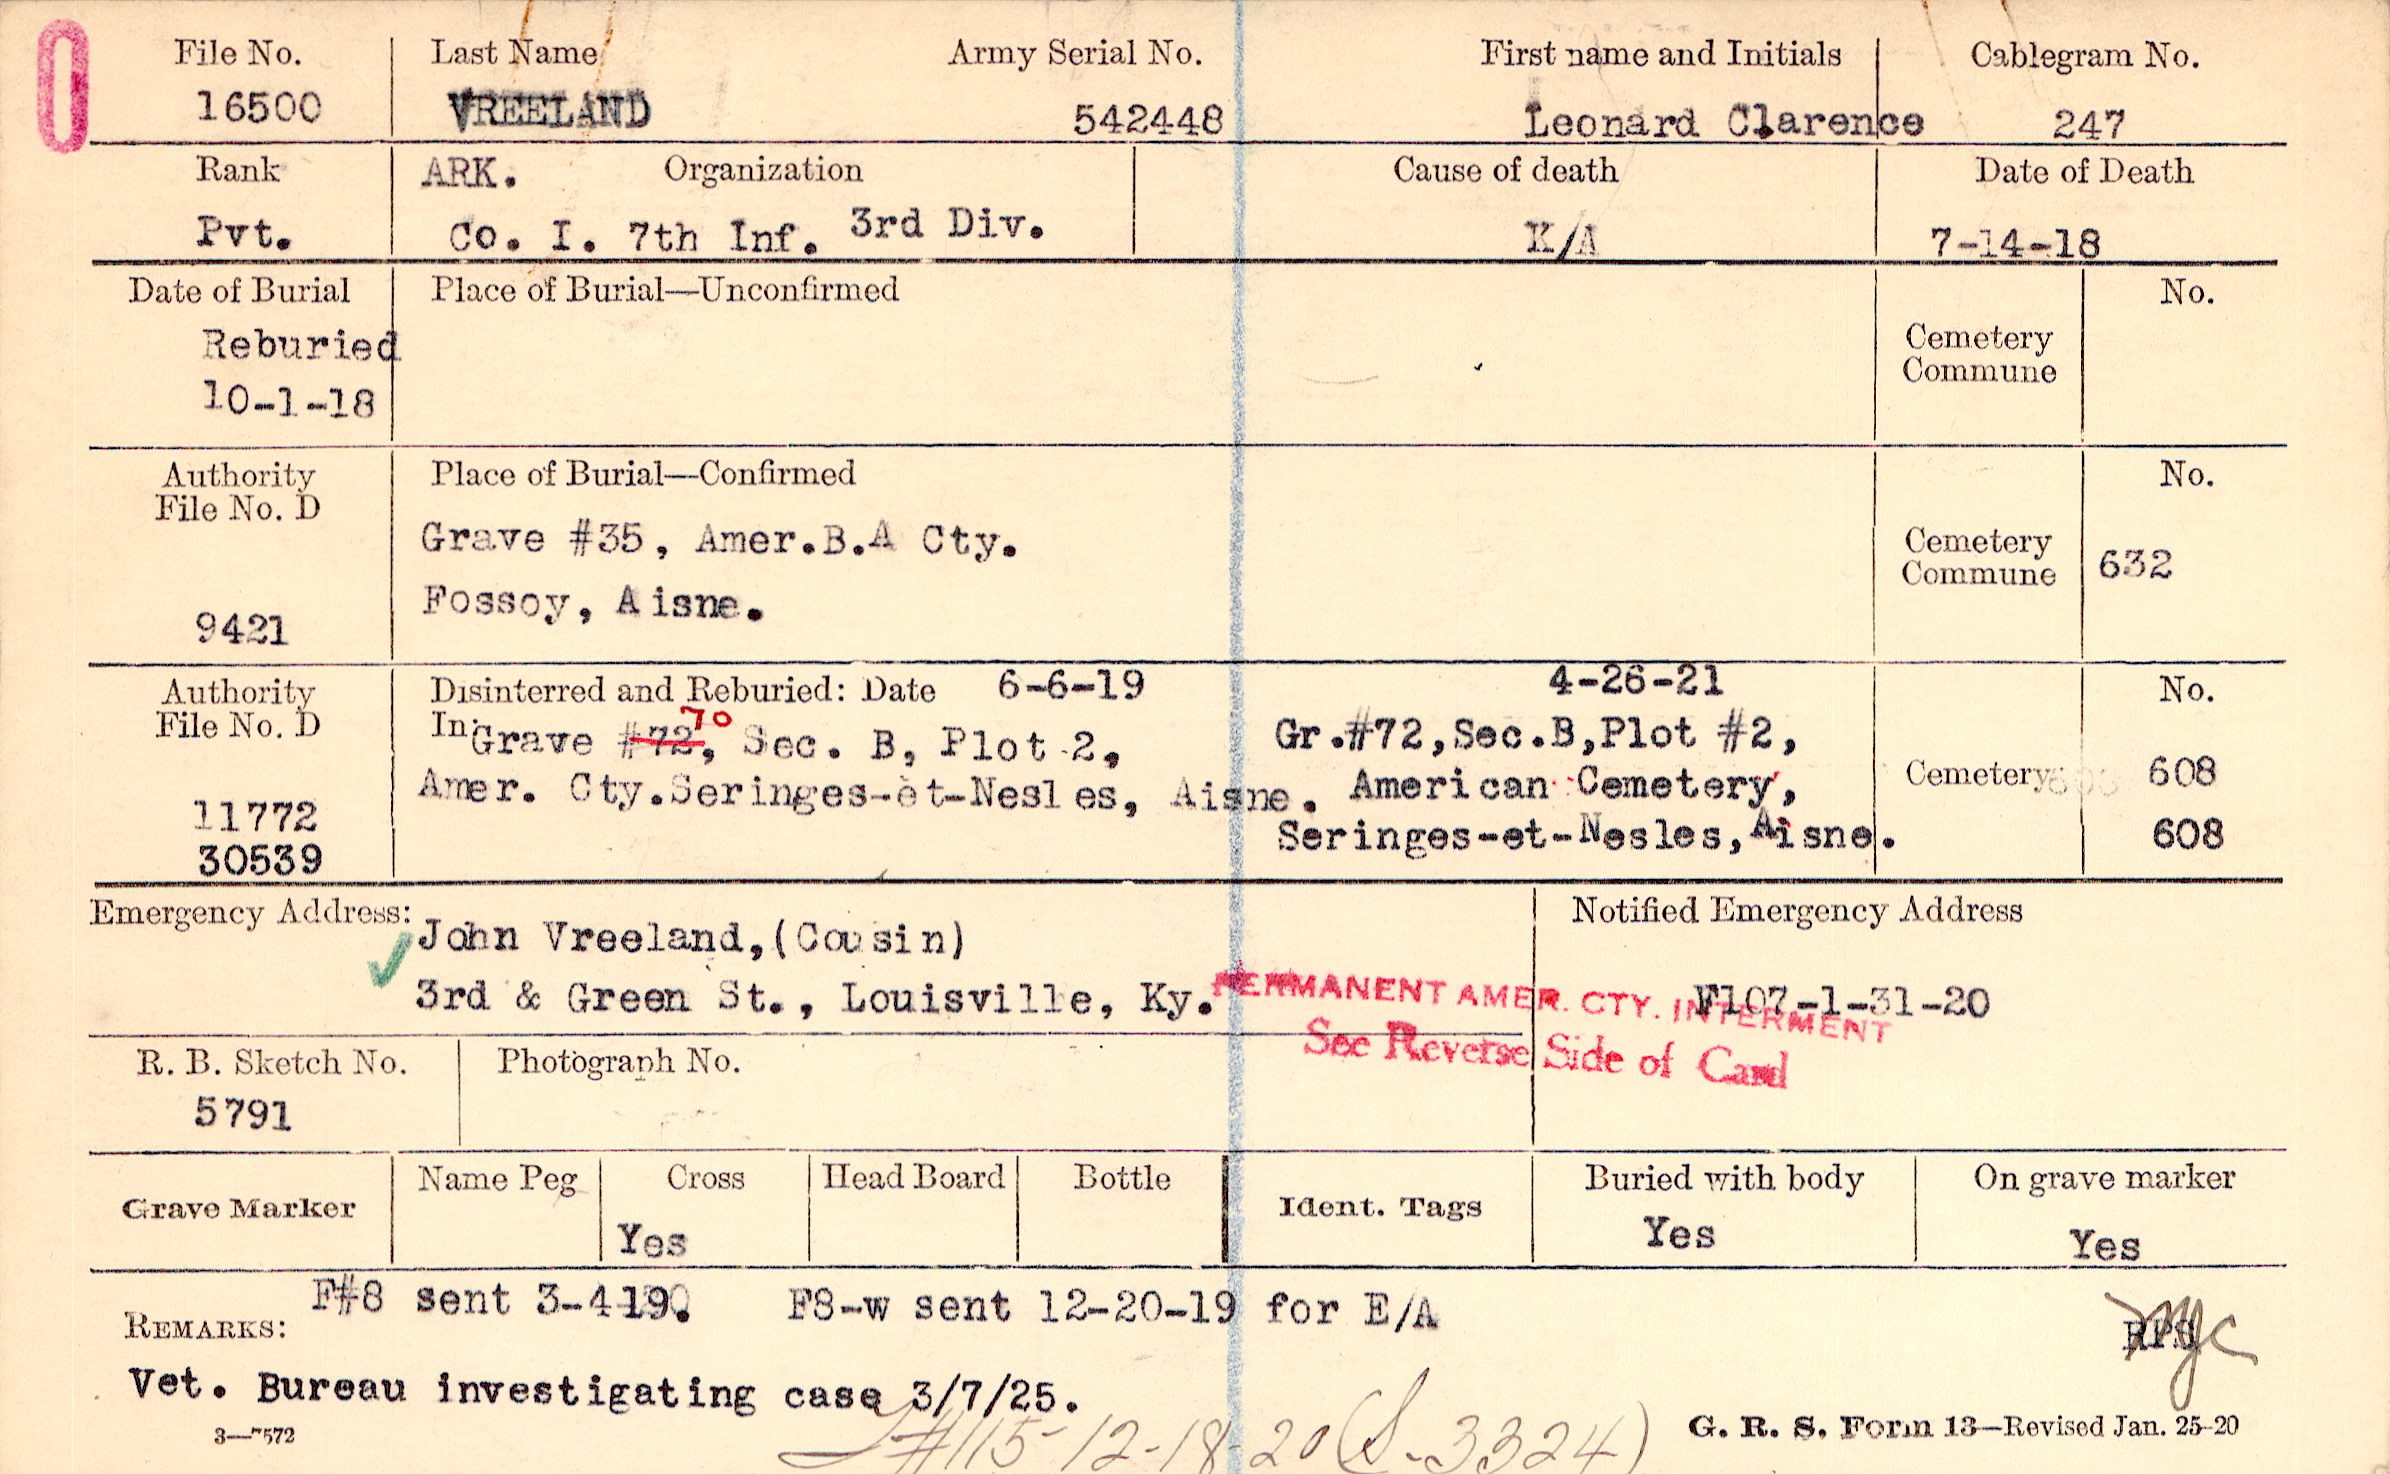 File No. Last Name Army Serial No. First name and Initials Cablegram No.
16500 VREELAND 542448 Leonard Clarence 247
Rank ARK. Organization Cause of death Date of Death
Pvt. Co. I. 7th Inf. 3rd Div. K/A 7-14-18
Date of Burial Place of Burial—Unconfirmed No.
Reburied Cemetery
10-1-18 Commune
Authority Place of Burial—Confirmed No.
File No. D
Grave #35, Amer.B.A Cty. Cemetery
Fossoy, Aisne. Commune 632
9421
Authority Disinterred and Reburied: Date 6-6-19 4-26-21 No.
File No. D In Grave #72, 70 Sec. B, Plot 2, Gr.#72,Sec.B,Plot #2,
Amer. Cty.Seringes-et-Nesles, Aisne. American Cemetery, Cemetery 608 608
11772 Seringes-et-Nesles,Aisne. 608
30539
Emergency Address: Notified Emergency Address
John Vreeland,(Cousin)
3rd & Green St., Louisville, Ky. F107-1-31-20
PERMANENT AMER. CTY. INTERMENT
See Reverse Side of Card
R. B. Sketch No. Photograph No.
5791
Grave Marker Name Peg Cross Head Board Bottle Ident. Tags Buried with body On grave marker
Yes Yes Yes
F#8 sent 3-4-19. F8-w sent 12-20-19 for E/A
REMARKS:
Vet. Bureau investigating case 3/7/25.
#115-12-18-20 (S-3324)
3—7572 G. R. S. Form 13—Revised Jan. 25-20